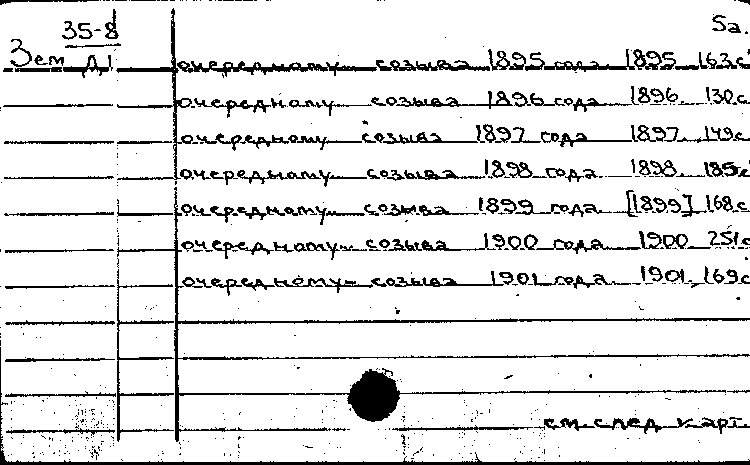 35-8 5а.
Зем Д1 очередному созыва 1895 года. 1895. 163с
очередному созыва 1896 года 1896. 130с
очередному созыва 1897 года 1897. 149с
очередному созыва 1898 года 1898. 185с
очередному созыва 1899 года [1899] 168с
очередному созыва 1900 года 1900 251с
очередному созыва 1901 года. 1901. 169с
см. след карт